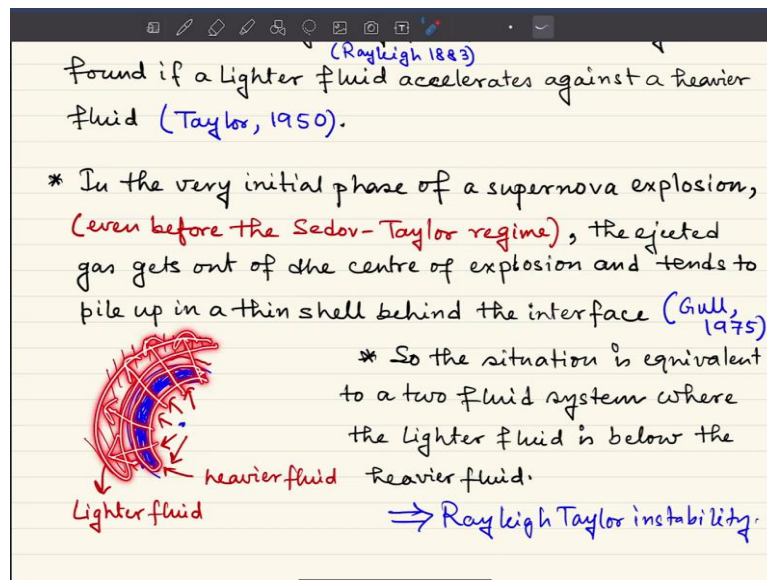 (Rayleigh 1883)
found if a Lighter fluid accelerates against a heavier
fluid (Taylor, 1950).
* In the very initial phase of a supernova explosion,
(even before the Sedov-Taylor regime), the ejected
gas gets out of the centre of explosion and tends to
pile up in a thin shell behind the interface (Gull,
1975)
* So the situation is equivalent
to a two fluid system where
the Lighter fluid is below the
heavier fluid.
heavier fluid
Lighter fluid
⇒ Rayleigh Taylor instability.